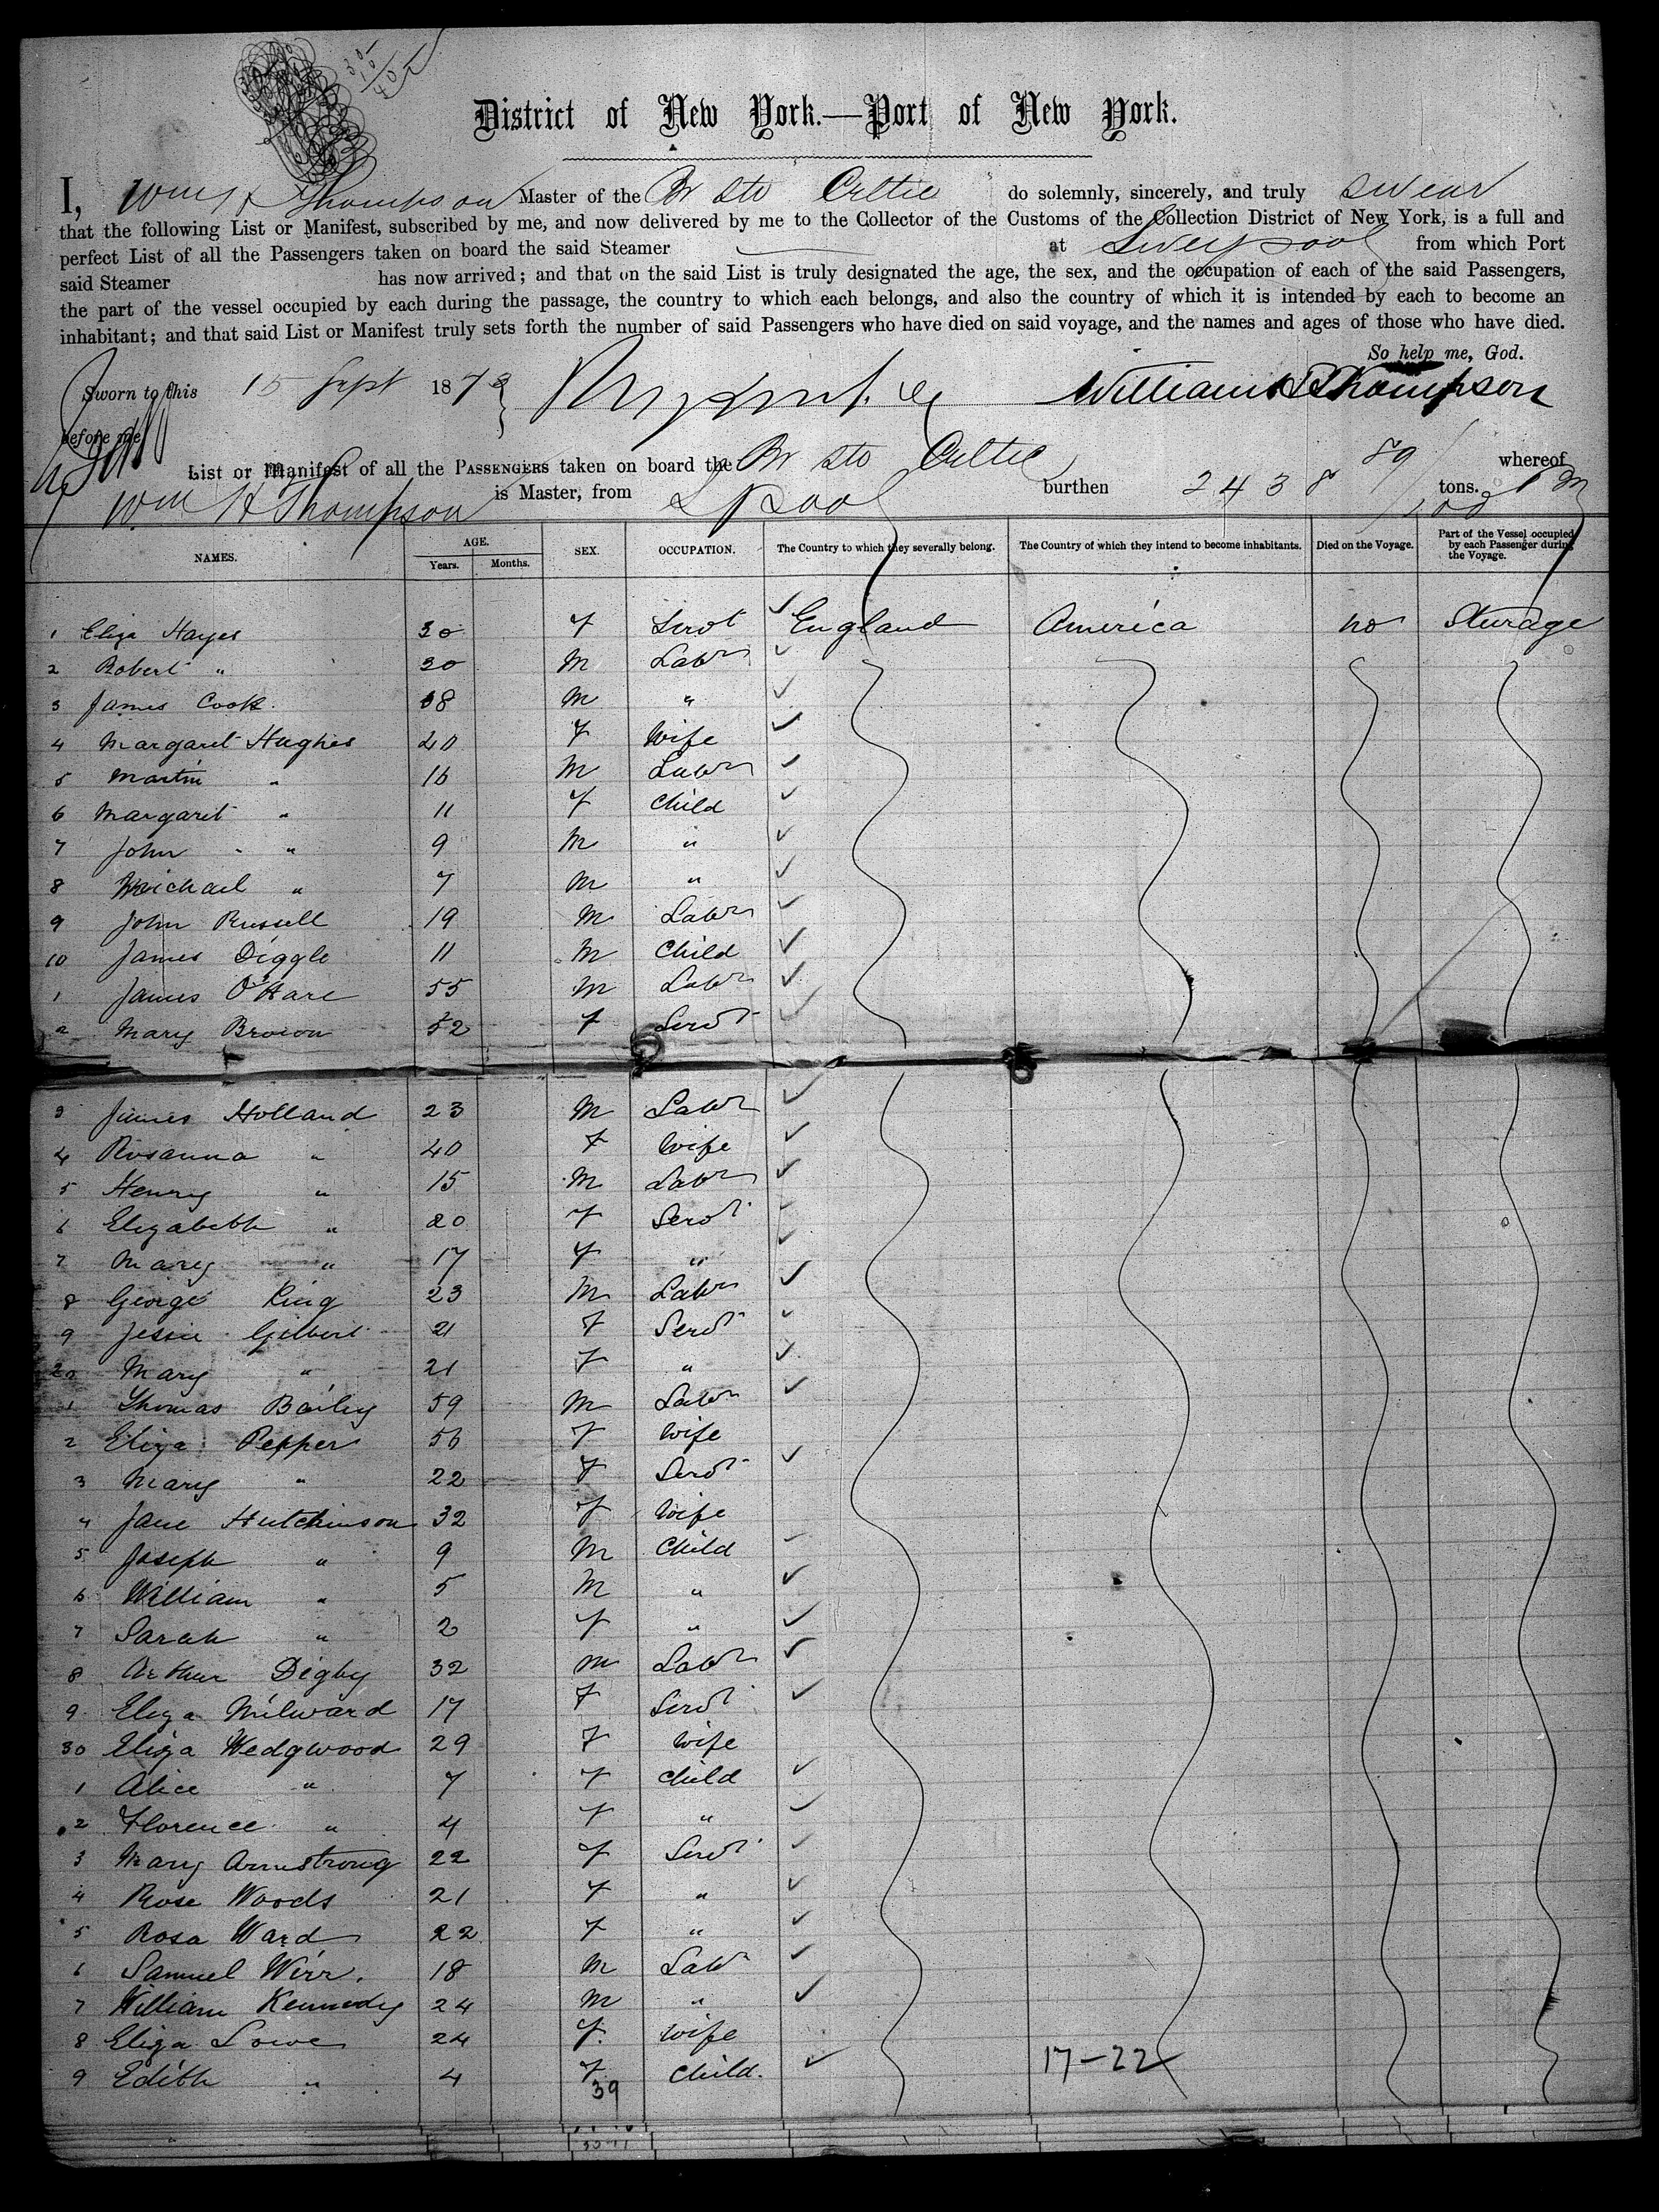 District of New York.—Port of New York.
I, Wm H Thompson Master of the Br Str Celtic do solemnly, sincerely, and truly swear
that the following List or Manifest, subscribed by me, and now delivered by me to the Collector of the Customs of the Collection District of New York, is a full and
perfect List of all the Passengers taken on board the said Steamer at Liverpool from which Port
said Steamer has now arrived; and that on the said List is truly designated the age, the sex, and the occupation of each of the said Passengers,
the part of the vessel occupied by each during the passage, the country to which each belongs, and also the country of which it is intended by each to become an
inhabitant; and that said List or Manifest truly sets forth the number of said Passengers who have died on said voyage, and the names and ages of those who have died.
So help me, God.
Sworn to this 15 Sept 1879 William H Thompson
before me
List or Manifest of all the PASSENGERS taken on board the Br Str Celtic burthen 2438 89/100 tons. whereof
Wm H Thompson is Master, from Lpool
NAMES. AGE. SEX. OCCUPATION. The Country to which they severally belong. The Country of which they intend to become inhabitants. Died on the Voyage. Part of the Vessel occupied by each Passenger during the Voyage.
Years. Months.
1 Eliza Hayes 30 F Servt England America no Sturage
2 Robert " 30 M Labr
3 James Cook 38 M "
4 Margaret Hughes 40 F Wife
5 Martin " 16 M Labr
6 Margaret " 11 F Child
7 John " 9 M "
8 Michael " 7 M "
9 John Russell 19 M Labr
10 James Diggle 11 M Child
1 James O'Hare 55 M Labr
2 Mary Brown 52 F Servt
3 James Holland 23 M Labr
4 Rosanna " 40 F Wife
5 Henry " 15 M Labr
6 Elizabeth " 20 F Servt
7 Mary " 17 F "
8 George King 23 M Labr
9 Jessie Gilbert 21 F Servt
20 Mary " 21 F "
1 Thomas Bailey 59 M Labr
2 Eliza Pepper 56 F Wife
3 Mary " 22 F Servt
4 Jane Hutchinson 32 F Wife
5 Joseph " 9 M Child
6 William " 5 M "
7 Sarah " 2 F "
8 Arthur Digby 32 M Labr
9 Eliza Milward 17 F Servt
30 Eliza Wedgwood 29 F Wife
1 Alice " 7 F Child
2 Florence " 4 F "
3 Mary Armstrong 22 F Servt
4 Rose Woods 21 F "
5 Rosa Ward 22 F "
6 Samuel Wirr. 18 M Labr
7 William Kennedy 24 M "
8 Eliza Lowe 24 F. Wife
9 Edith " 4 F Child.
39
17-22